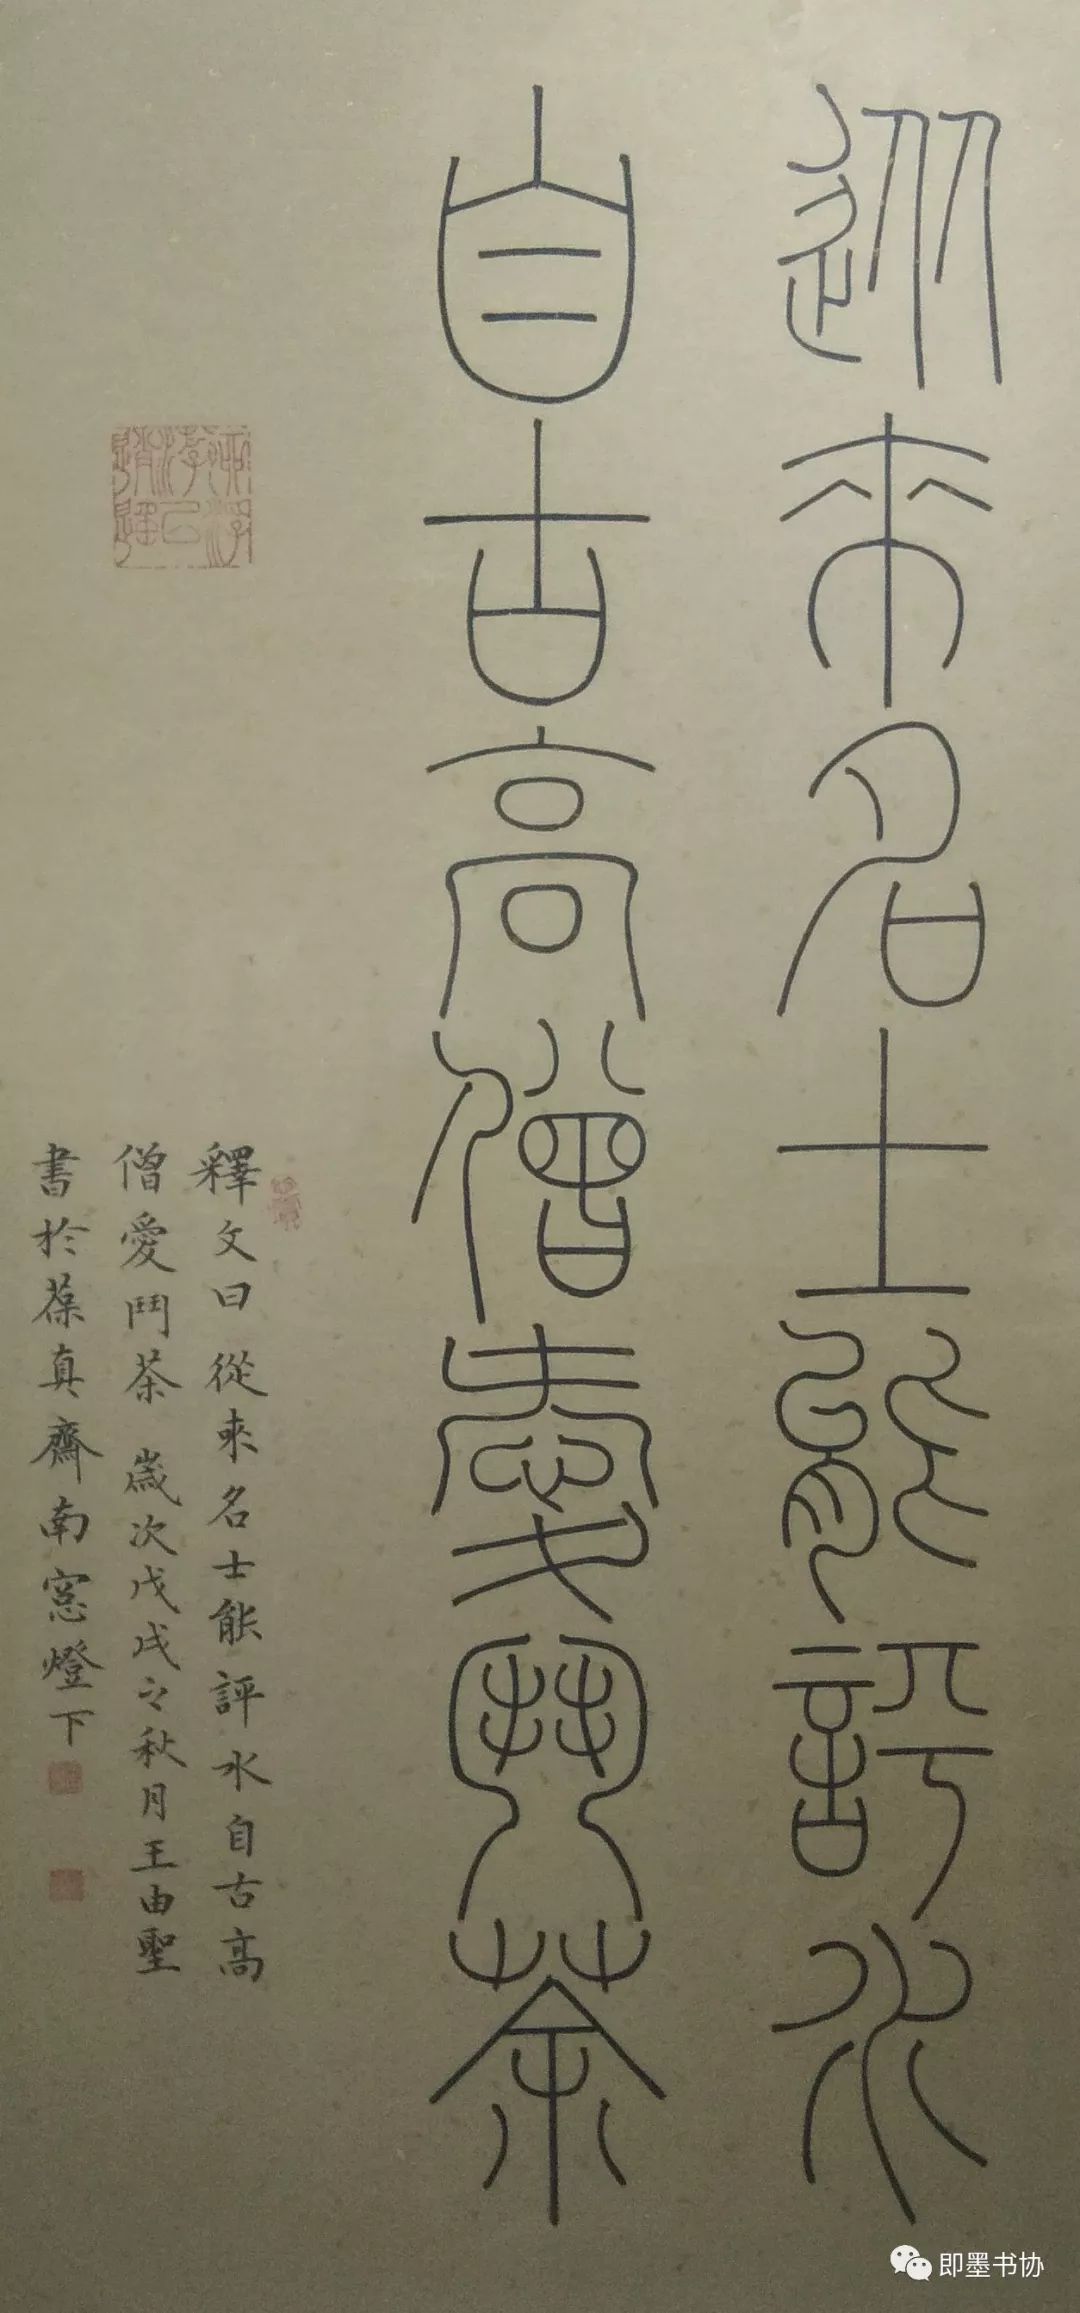 從來名士能評水
自古高僧愛鬥茶
釋文曰從来名士能評水自古高
僧愛鬥茶歲次戊戌之秋月王由聖
書於葆真齋南窓燈下
即墨书协